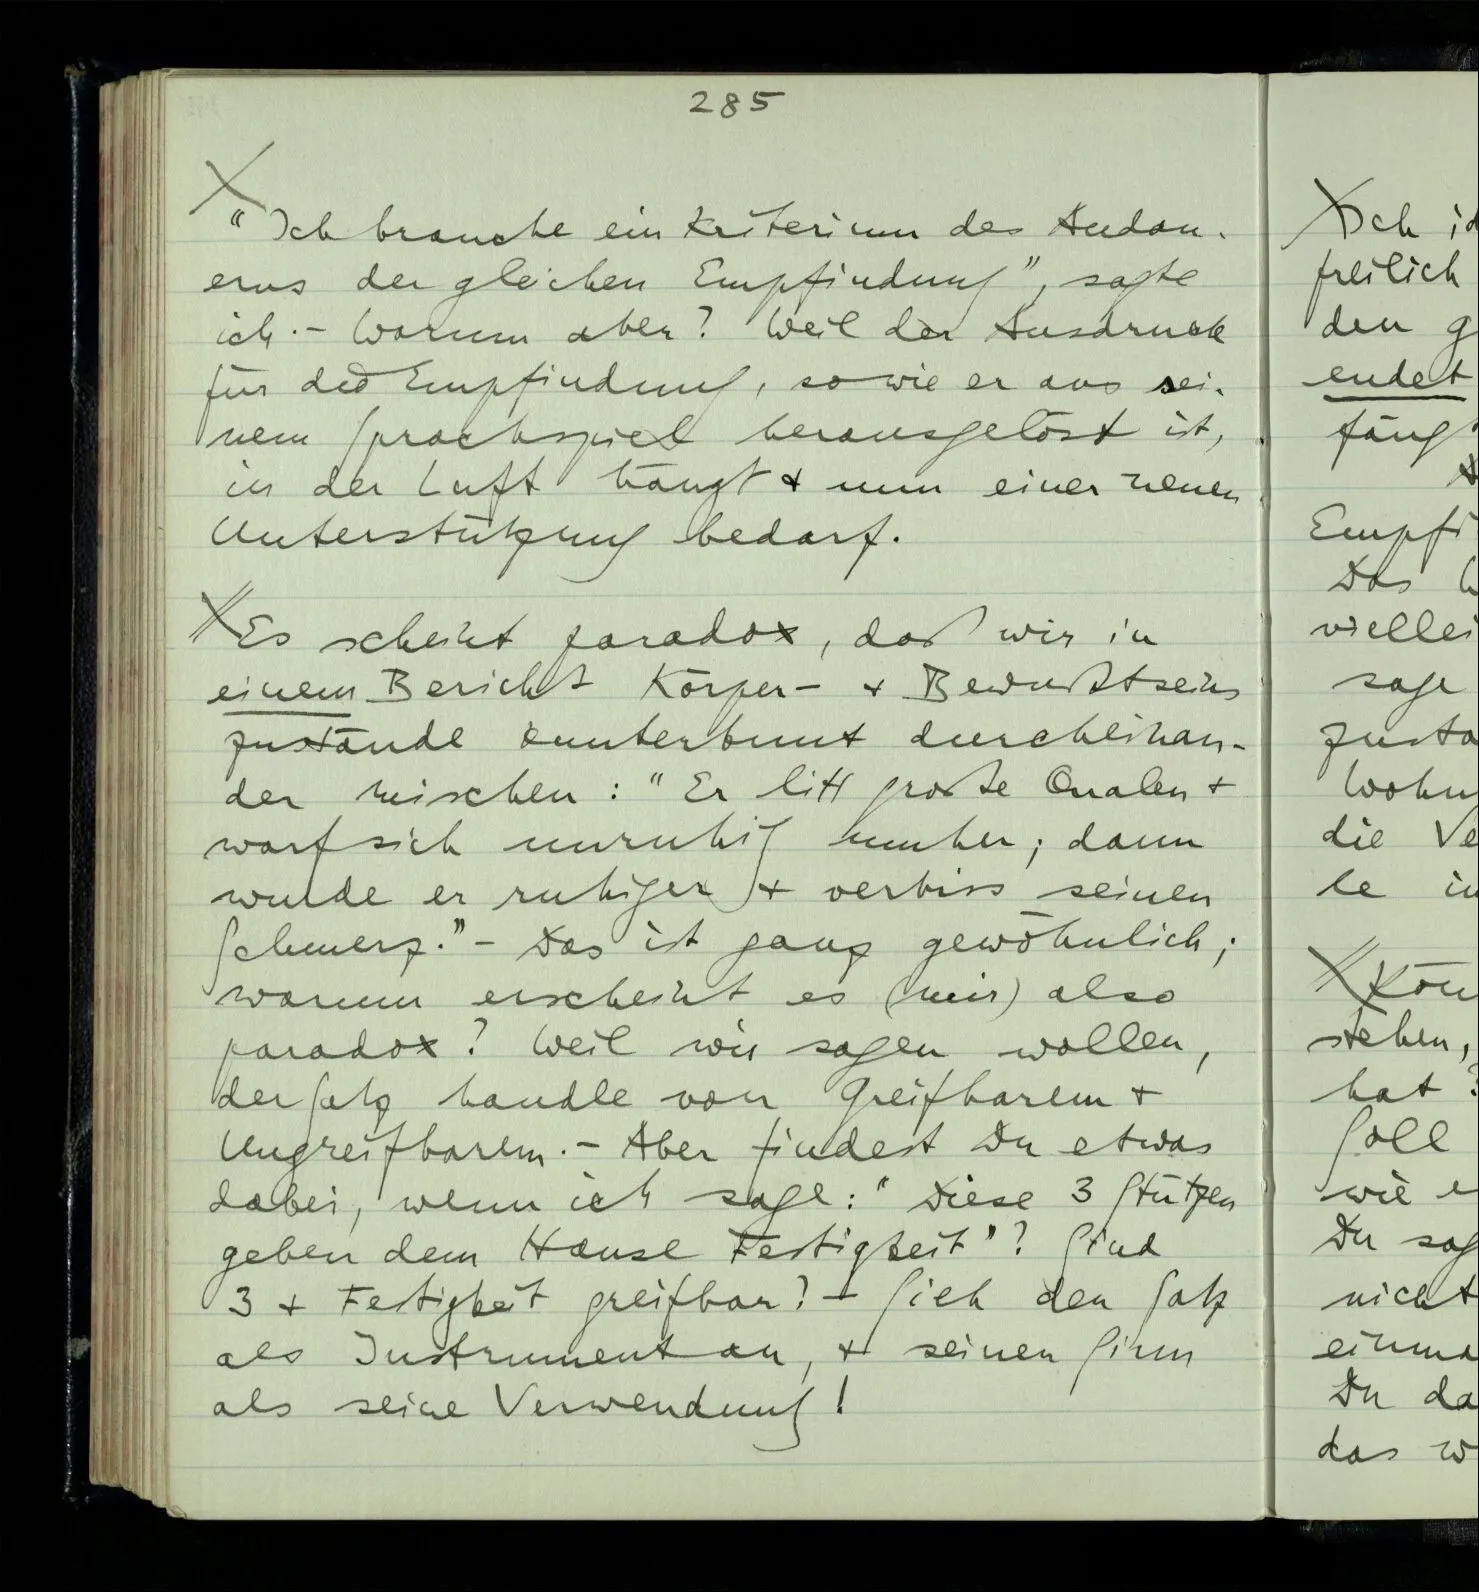 285
"Ich brauche ein Kriterium des Andau-
erns der gleichen Empfindung", sagte
ich. – Warum aber? Weil der Ausdruck
für die Empfindung, so wie er aus sei-
nem Sprachspiel herausgelöst ist,
in der Luft hängt & nun einer neuen
Unterstützung bedarf.
Es scheint paradox, daß wir in
einem Bericht Körper- & Bewußtseins
zustände kunterbunt durcheinan-
der mischen: "Er litt große Qualen &
warf sich unruhig umher; dann
wurde er ruhiger & verbiss seinen
Schmerz." – Das ist ganz gewöhnlich;
warum erscheint es (mir) also
paradox? Weil wir sagen wollen,
der Satz handle von Greifbarem &
Ungreifbarem. – Aber findest Du etwas
dabei, wenn ich sage: "Diese 3 Stützen
geben dem Hause Festigkeit"? Sind
3 & Festigkeit greifbar? – Sieh den Satz
als Instrument an, & seinen Sinn
als seine Verwendung!
Ich
freilich
den
endet
fäng
Empfi
Das
viellei
sage
zusta
Wohn
die Ve
le in
Kön
stehen,
hat?
Soll
wie
Du sag
nicht
einma
Du da
das w